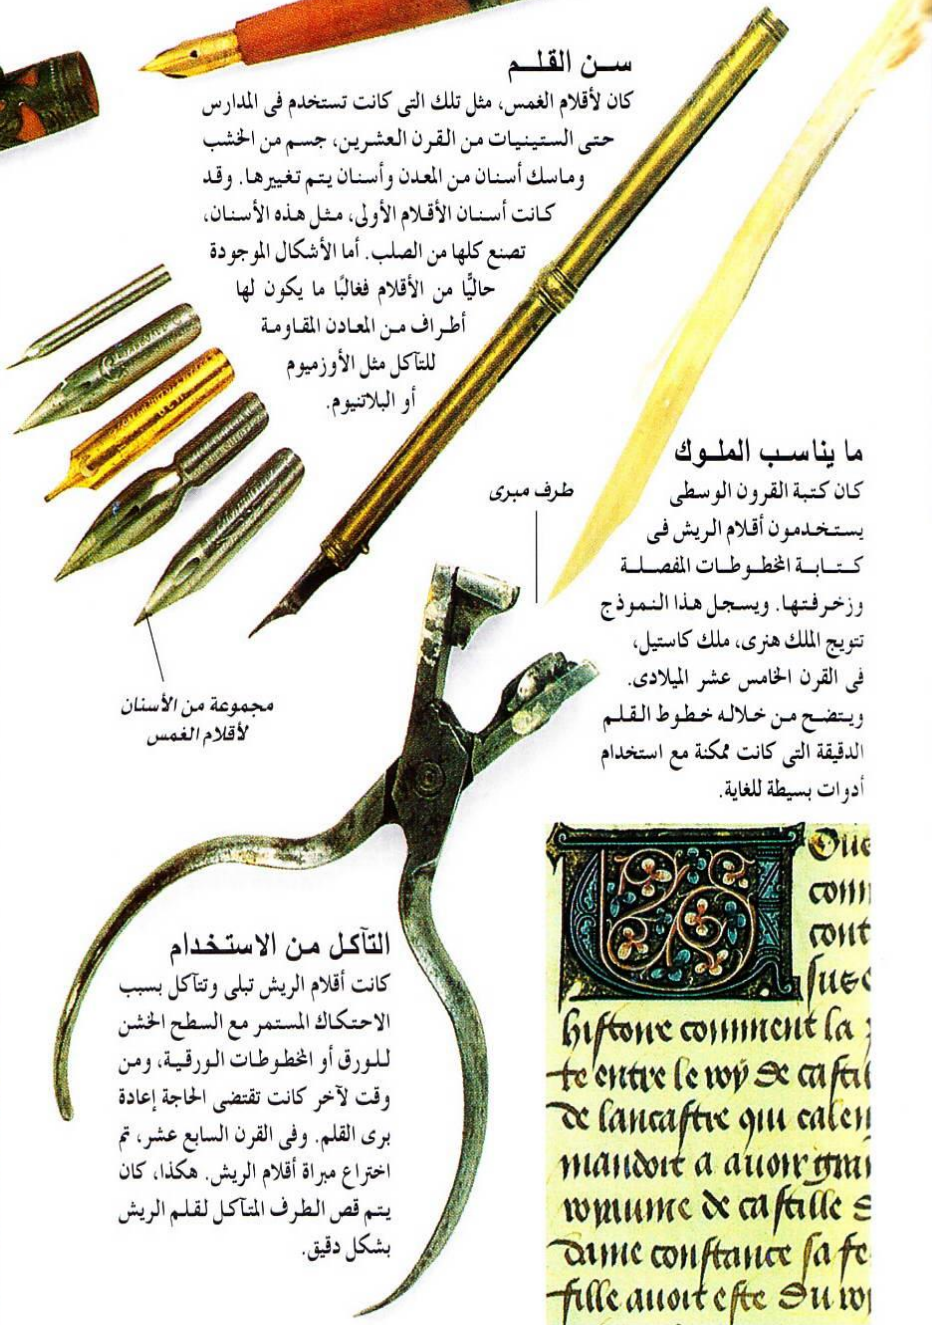 سن القلم
كان لأقلام الغمس، مثل تلك التى كانت تستخدم فى المدارس
حتى الستينيات من القرن العشرين، جسم من الخشب
وماسك أسنان من المعدن وأسنان يتم تغييرها. وقد
كانت أسنان الأقلام الأولى، مثل هذه الأسنان،
تصنع كلها من الصلب. أما الأشكال الموجودة
حاليًّا من الأقلام فغالبًا ما يكون لها
أطراف من المعادن المقاومة
للتآكل مثل الأوزميوم
أو البلاتنيوم.
ما يناسب الملوك
كان كتبة القرون الوسطى
يستخدمون أقلام الريش فى
كتابة المخطوطات المفصلة
وزخرفتها. ويسجل هذا النموذج
تتويج الملك هنرى، ملك كاستيل،
فى القرن الخامس عشر الميلادى.
ويتضح من خلاله خطوط القلم
الدقيقة التى كانت ممكنة مع استخدام
أدوات بسيطة للغاية.
طرف مبرى
مجموعة من الأسنان
لأقلام الغمس
التآكل من الاستخدام
كانت أقلام الريش تبلى وتتآكل بسبب
الاحتكاك المستمر مع السطح الخشن
للورق أو المخطوطات الورقية، ومن
وقت لآخر كانت تقتضى الحاجة إعادة
برى القلم. وفى القرن السابع عشر، تم
اختراع مبراة أقلام الريش. هكذا، كان
يتم قص الطرف المتآكل لقلم الريش
بشكل دقيق.
histoire comment la
te entre le roy de castil
de lancastre qui calen
mandoit a auoir gran
royaume de castille
dame constance sa fe
fille auoit este du roy